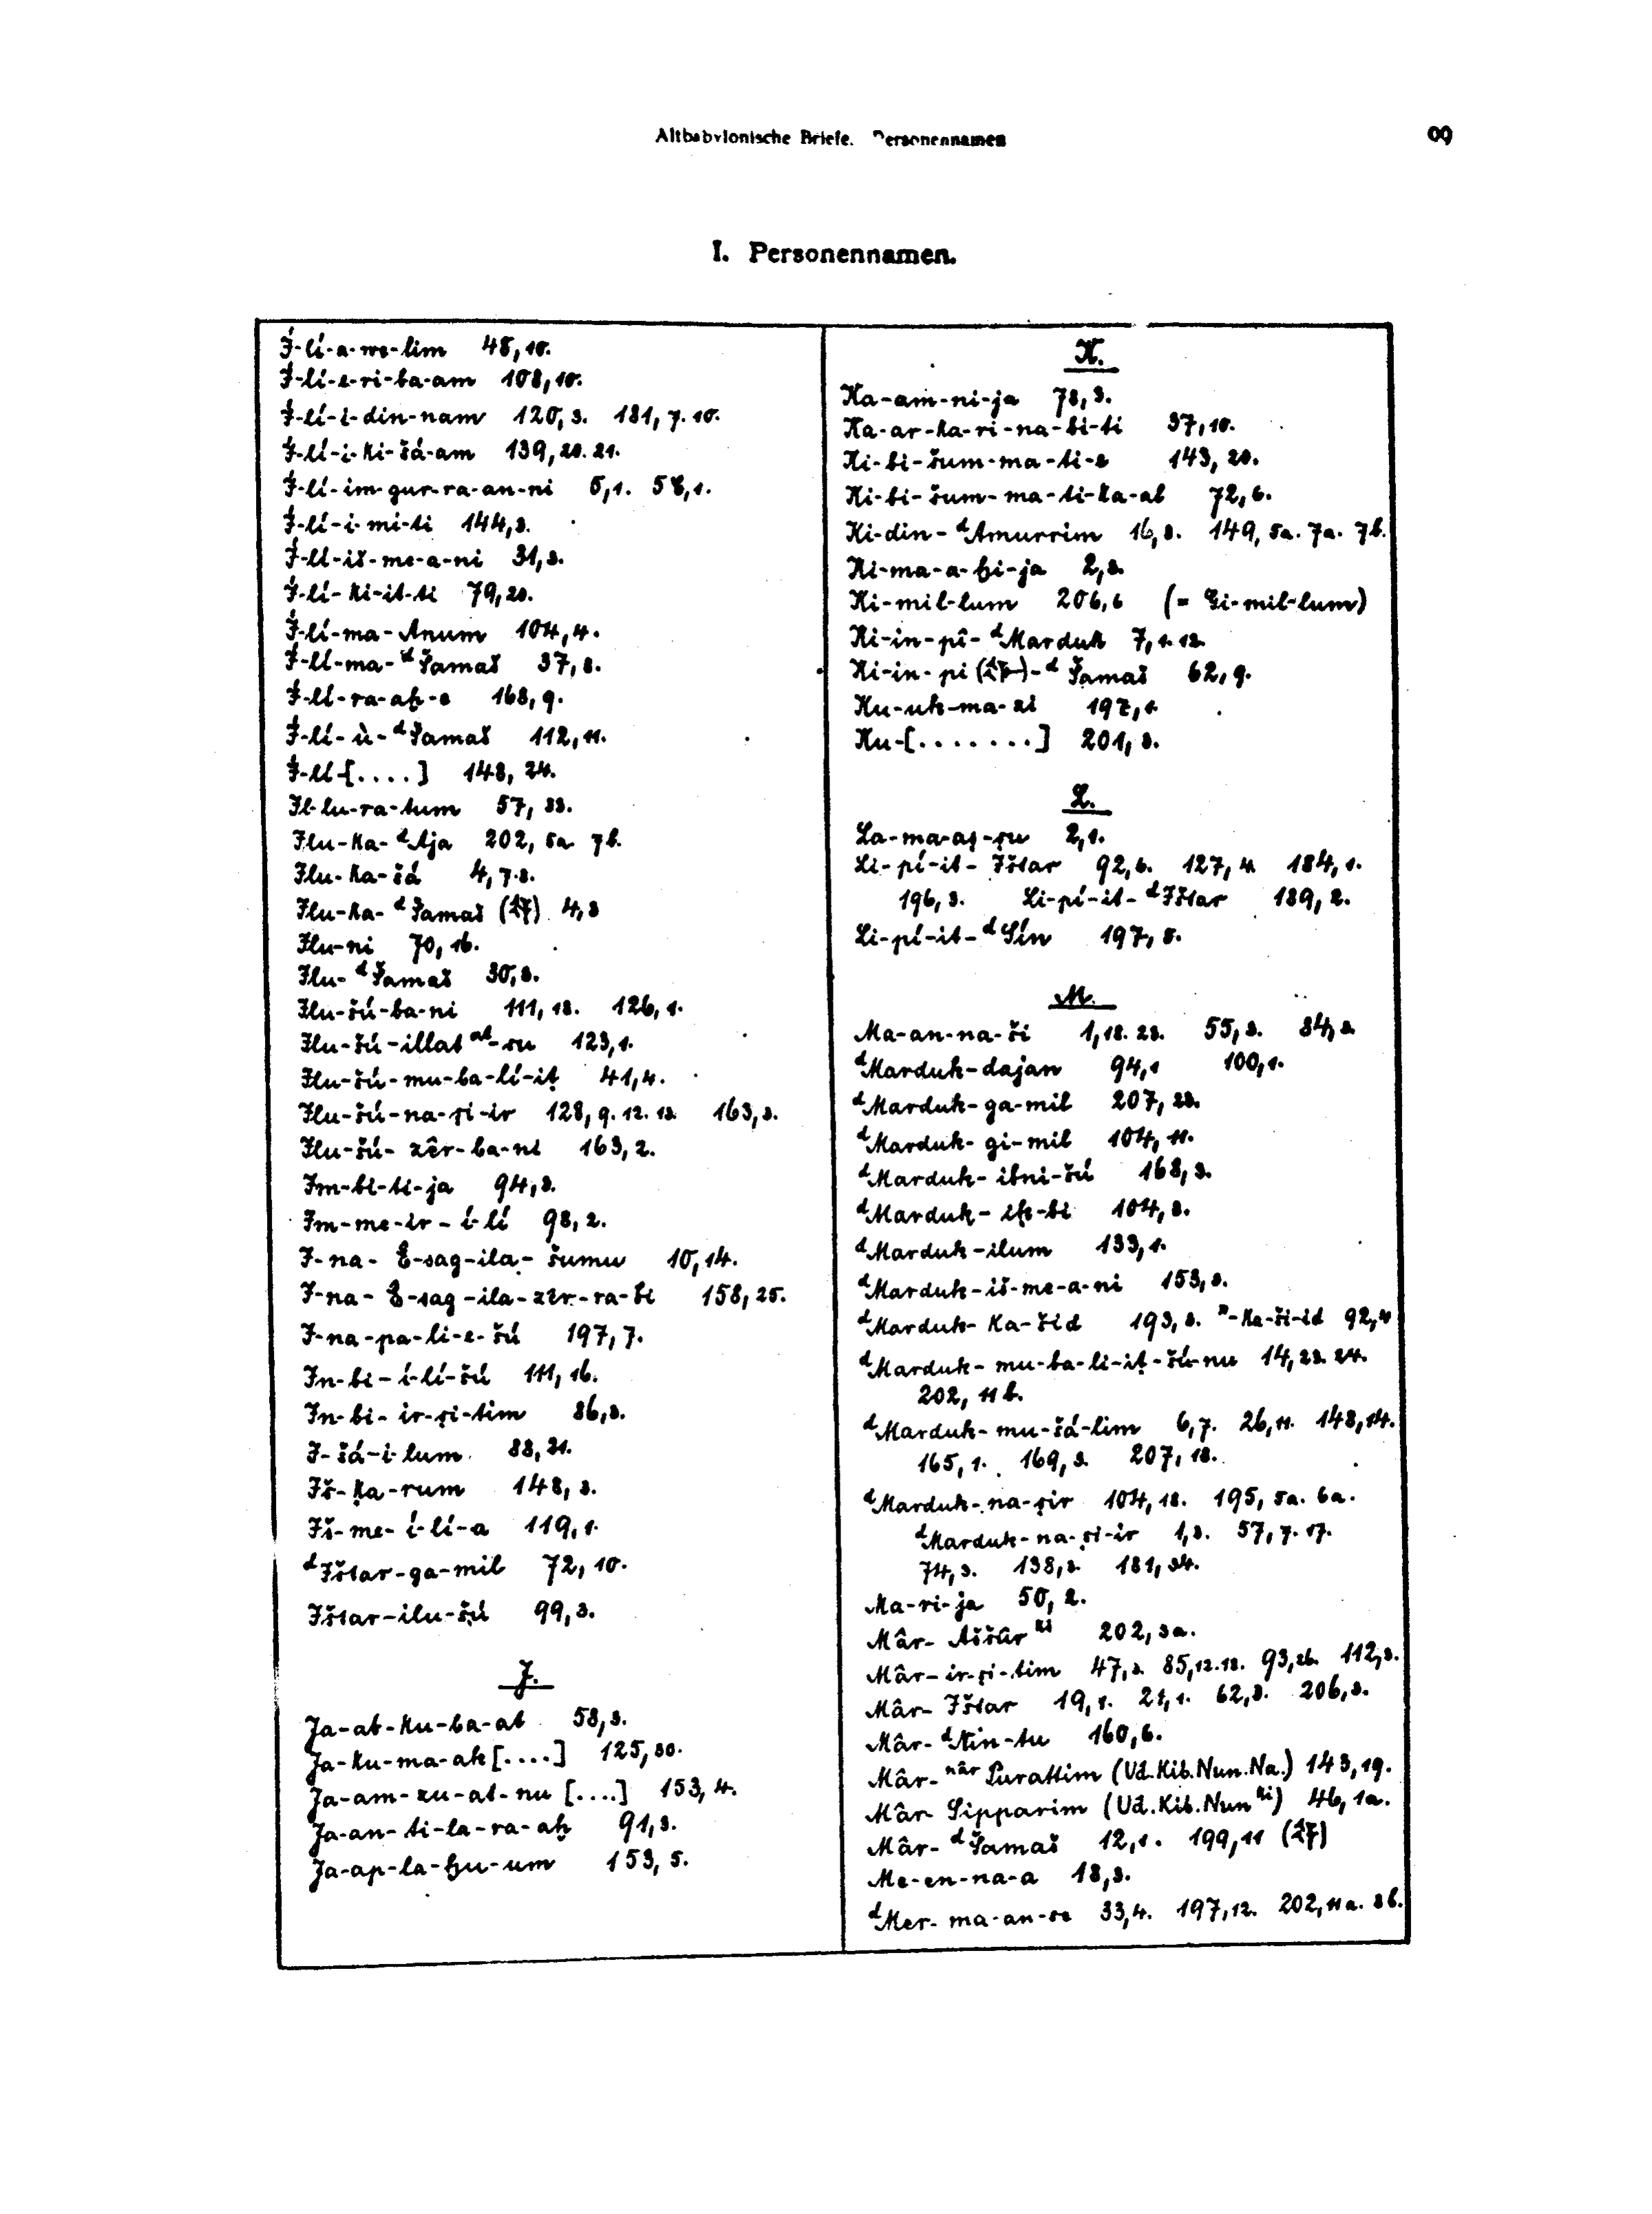 Altbabylonische Briefe. Personennamen
99
I. Personennamen.
Ì-lí-a-we-lim 48,10.
Ì-lí-e-ri-ba-am 108,10.
Ì-lí-i-din-nam 120,3. 181,7.10.
Ì-lí-i-ki-šá-am 139,20.21.
Ì-lí-im-gur-ra-an-ni 5,1. 58,1.
Ì-lí-i-mi-ti 144,3.
Ì-lí-iš-me-a-ni 31,3.
Ì-lí-ki-it-ti 79,20.
Ì-lí-ma-Anum 104,4.
Ì-lí-ma-ᵈŠamaš 37,8.
Ì-lí-ra-aḫ-e 168,9.
Ì-lí-ù-ᵈŠamaš 112,11.
Ì-lí-[....] 148,24.
Il-lu-ra-tum 57,33.
Ilu-ka-ᵈAja 202,5a. 7b.
Ilu-ka-šá 4,7.8.
Ilu-ka-ᵈŠamaš 4,3
Ilu-ni 70,16.
Ilu-ᵈŠamaš 30,3.
Ilu-šú-ba-ni 111,18. 126,1.
Ilu-šú-illat ᵃᵗ-su 123,1.
Ilu-šú-mu-ba-lí-iṭ 41,4.
Ilu-šú-na-ṣi-ir 128,9.12.13. 163,3.
Ilu-šú-zêr-ba-ni 163,2.
Im-bi-ti-ja 94,3.
Im-me-ir-ì-lí 98,2.
I-na-É-sag-ila-šumu 10,14.
I-na-É-sag-ila-zêr-ra-bi 158,25.
I-na-pa-li-e-šú 197,7.
In-bi-ì-lí-šú 111,16.
In-bi-ir-ṣi-tim 86,3.
I-šá-i-lum 88,21.
Iš-ḳa-rum 148,3.
Iš-me-ì-lí-a 119,1.
ᵈIštar-ga-mil 72,10.
Ištar-ilu-šú 99,3.
J.
Ja-ab-ku-ba-al 58,3.
Ja-ku-ma-ak[....] 125,30.
Ja-am-zu-at-nu [....] 153,4.
Ja-an-ti-la-ra-aḫ 91,3.
Ja-ap-la-ḫu-um 153,5.
K.
Ka-am-ni-ja 78,3.
Ka-ar-ka-ri-na-bi-ti 37,10.
Ki-bi-šum-ma-ti-e 143,20.
Ki-bi-šum-ma-ti-ka-al 72,6.
Ki-din-ᵈAmurrim 16,3. 149,5a.7a.7b.
Ki-ma-a-ḫi-ja 2,2.
Ki-mil-lum 206,6 (= Gi-mil-lum)
Ki-in-pî-ᵈMarduk 7,1.12.
Ki-in-pi -ᵈŠamaš 62,9.
Ku-uk-ma-zi 197,1.
Ku-[.......] 201,3.
L.
La-ma-aṣ-ṣu 2,1.
Li-pí-it-Ištar 92,6. 127,4. 184,1.
196,3. Li-pí-it-ᵈIštar 189,2.
Li-pí-it-ᵈSin 197,5.
M.
Ma-an-na-ši 1,18.23. 55,3. 84,3.
ᵈMarduk-dajan 94,1 100,1.
ᵈMarduk-ga-mil 207,23.
ᵈMarduk-gi-mil 104,11.
ᵈMarduk-ibni-šú 168,3.
ᵈMarduk-iḳ-bi 104,3.
ᵈMarduk-ilum 133,1.
ᵈMarduk-iš-me-a-ni 153,3.
ᵈMarduk-ka-šid 193,3. "-ka-ši-id 92,4
ᵈMarduk-mu-ba-li-iṭ-šú-nu 14,23.24.
202,11b.
ᵈMarduk-mu-šá-lim 6,7. 26,11. 148,14.
165,1. 169,3. 207,18.
ᵈMarduk-na-ṣir 104,18. 195,5a.6a.
ᵈMarduk-na-ṣi-ir 1,3. 57,7.17.
74,3. 138,2. 181,34.
Ma-ri-ja 50,2.
Mâr-Aššûr ᵏⁱ 202,3a.
Mâr-ir-ṣi-tim 47,3. 85,12.18. 93,26. 112,3.
Mâr-Ištar 19,1. 21,1. 62,3. 206,3.
Mâr-ᵈNin-tu 160,6.
Mâr-ⁿâʳ Purattim (Ud.Kib.Nun.Na.) 143,19.
Mâr-Sipparim (Ud.Kib.Nun ᵏⁱ) 46,1a.
Mâr-ᵈŠamaš 12,1. 199,11
Me-en-na-a 18,3.
ᵈMer-ma-an-se 33,4. 197,12. 202,11a. 8b.